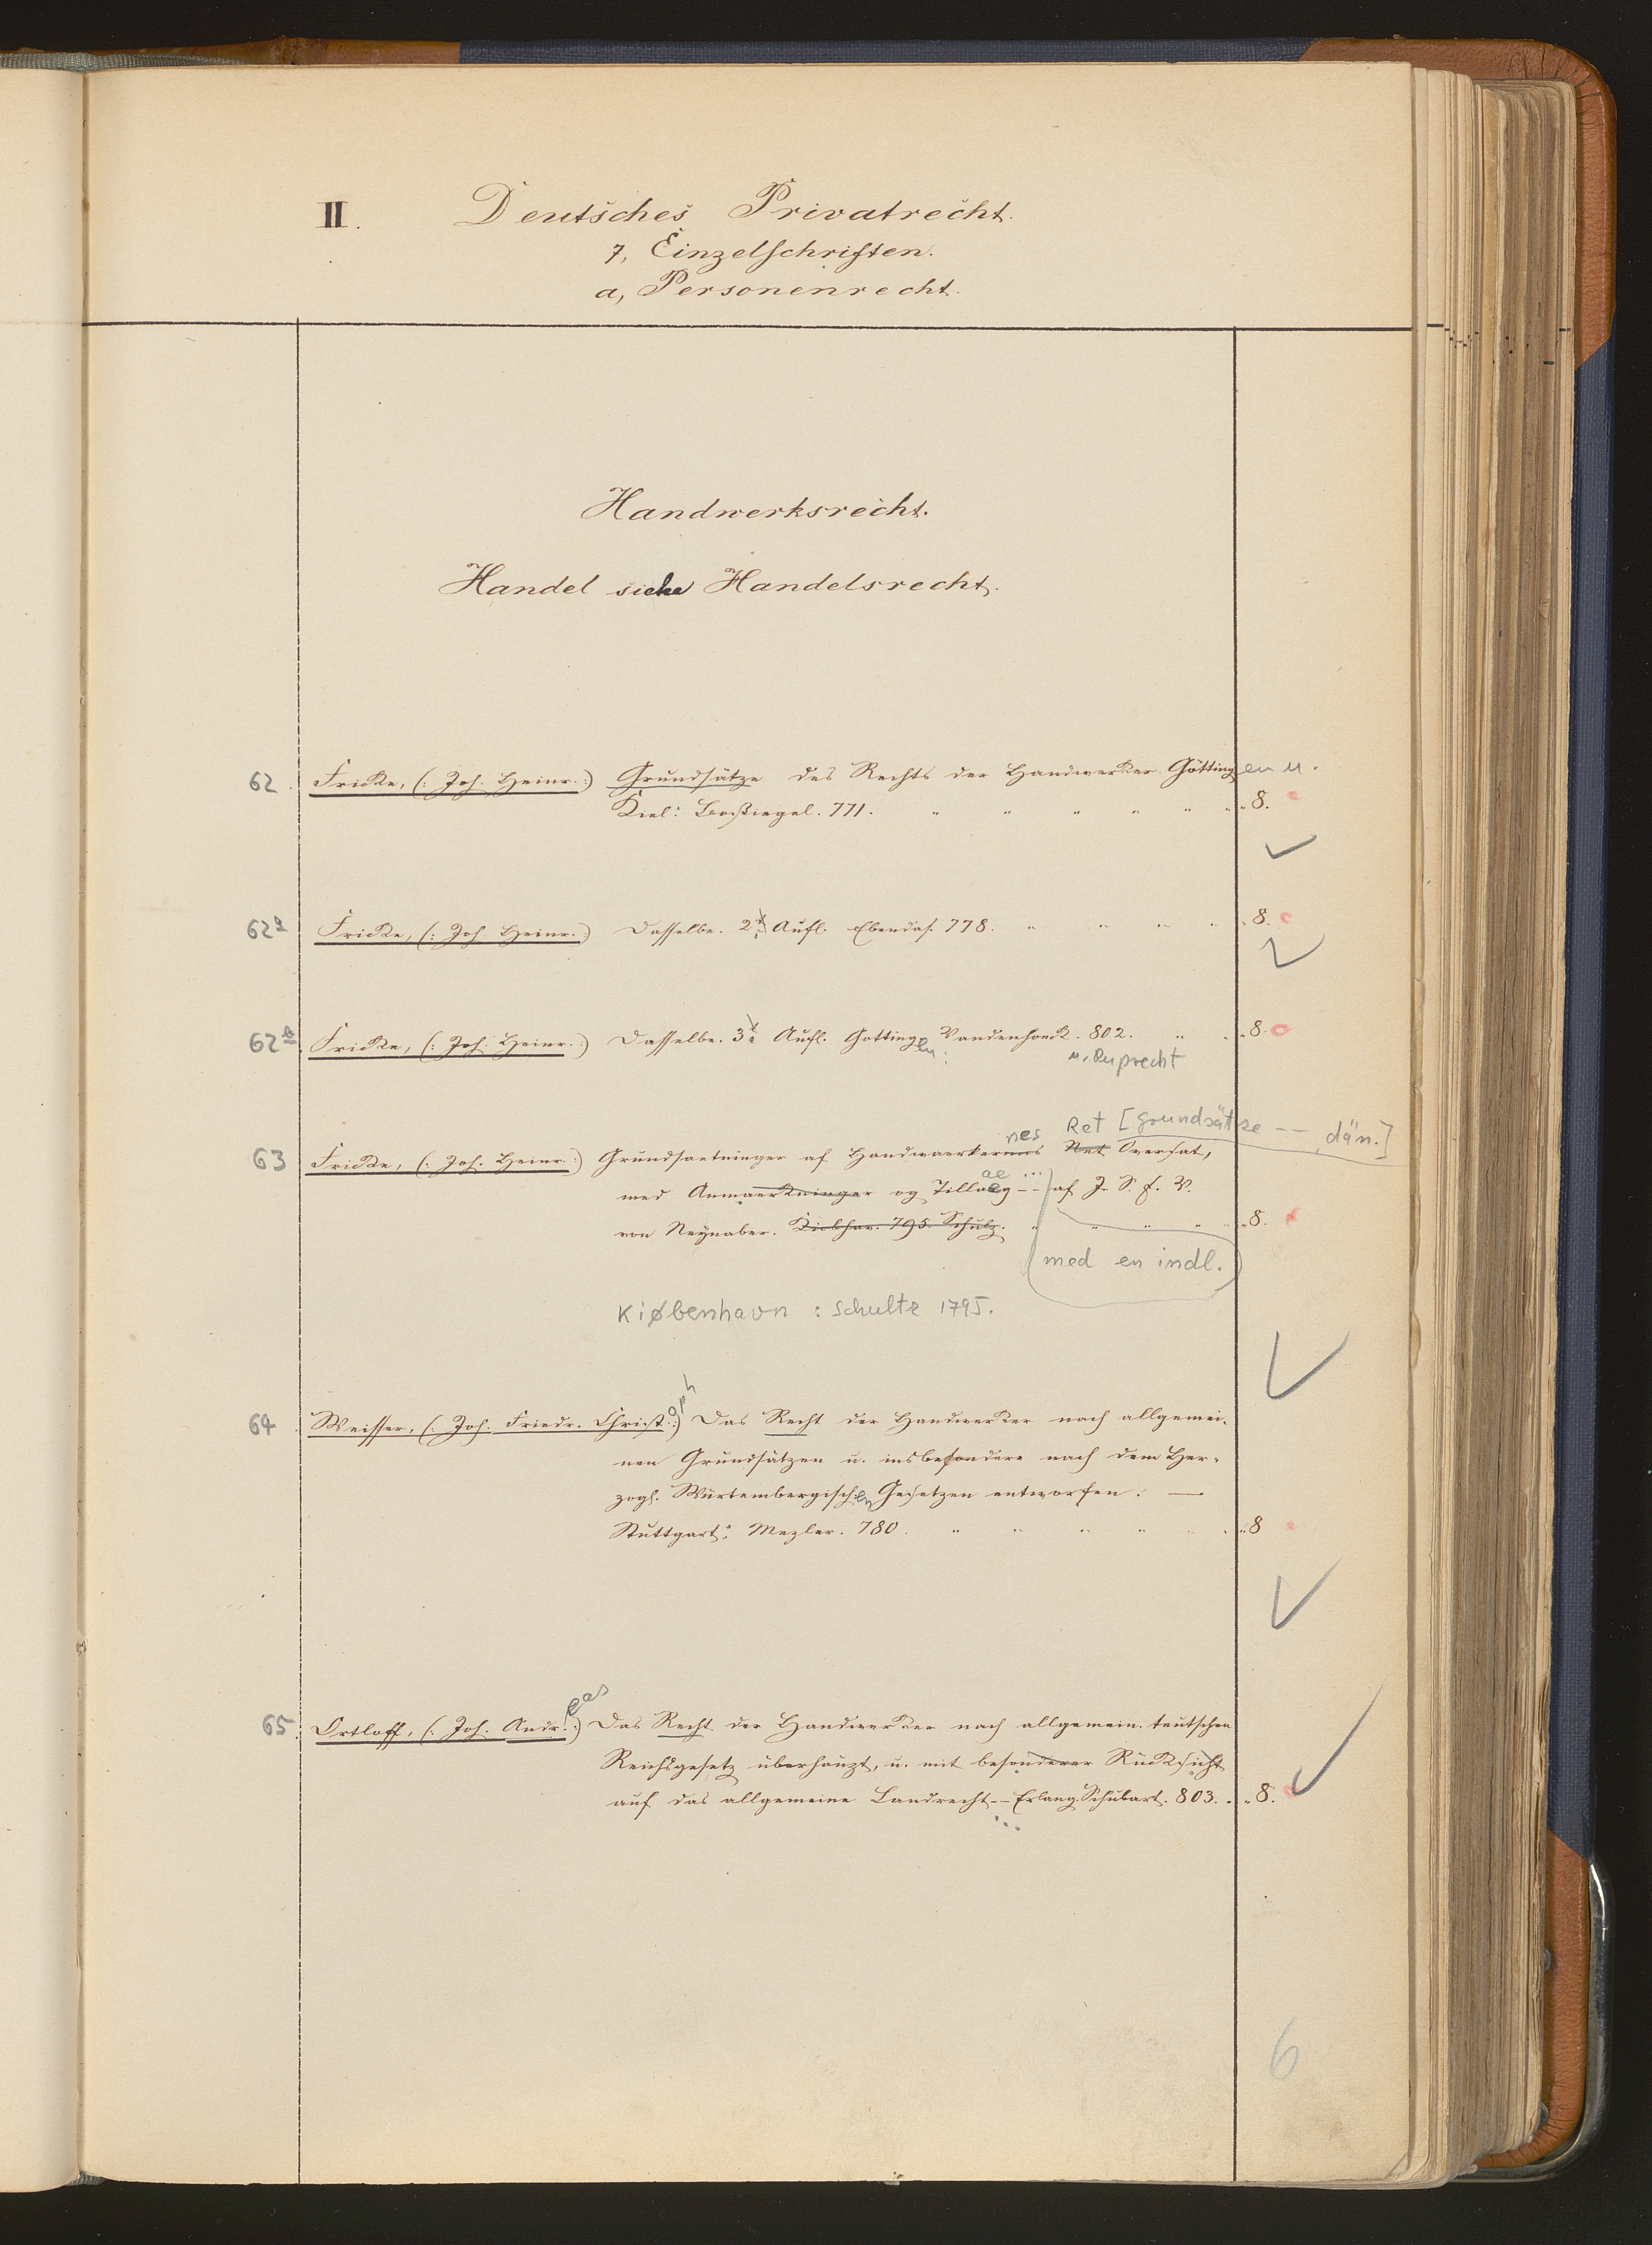 II. Deutsches Privatrecht.
7, Einzelschriften.
a, Personenrecht.
Handwerksrecht.
Handel siehe Handelsrecht.
62. Fricke, (: Joh. Heinr. :) Grundsätze des Rechts der Handwerker Göttingen u.
Kiel: Boßiegel. 771. 8.
62a Fricke, (: Joh. Heinr. :) Dasselbe. 2t Aufl. Ebendas. 778. 8.
62b Fricke, (: Joh. Heinr. :) Dasselbe. 3t Aufl. Gottingen: Vandenhoeck. 802. 8.
u. Ruprecht
nes Ret [Grundsätze -- dän.]
63 Fricke, (: Joh. Heinr. :) Grundsaetninger af Handwaerkernus Ret Oversat,
med Anmaerkninger og Tillaeg -- af J. S. f. V.
von Neynaber. Kiobhav. 795. Schulz. 8.
(med en indl.)
Kiøbenhavn : Schultz 1795.
64 Weisser, (: Joh. Friedr. Christoph :) Das Recht der Handwerker nach allgemei-
nen Grundsätzen u. insbesondere nach dem Her-
zogl. Würtembergischen Gesetzen entworfen. —
Stuttgart: Mezler. 780. 8
65. Ortloff, (: Joh. Andreas :) Das Recht der Handwerker nach allgemein. teutschen
Reichsgesetz überhaupt, u. mit besonderer Rücksicht
auf das allgemeine Landrecht -- Erlang. Schubart. 803. 8.
6